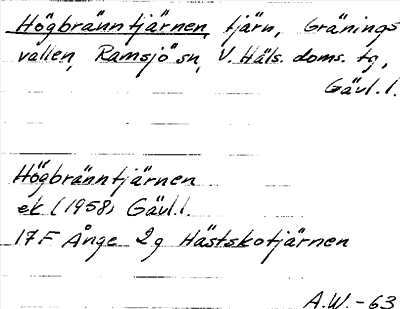 Högbränntjärnen, tjärn, Gränings
vallen, Ramsjö sn, V. Häls. doms. tg,
Gävl. l.
Högbränntjärnen
ek (1958) Gävl. l.
17F Ånge 2g Hästskotjärnen
A.W. - 63